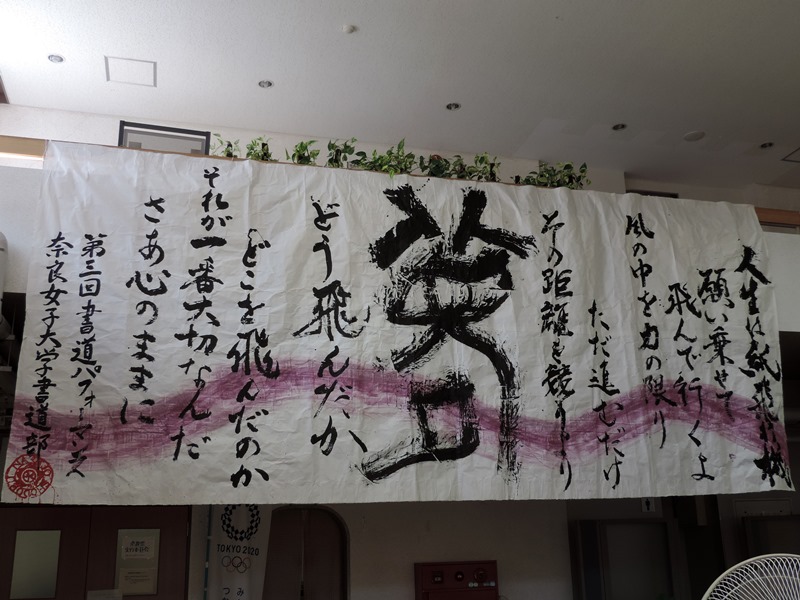 人生は紙飛行機
願い乗せて
飛んで行くよ
風の中を力の限り
ただ進むだけ
その距離を競うより
どう飛んだか
どこを飛んだのか
それが一番大切なんだ
さあ心のままに
第三回書道パフォーマンス
奈良女子大学書道部
TOKYO 2020